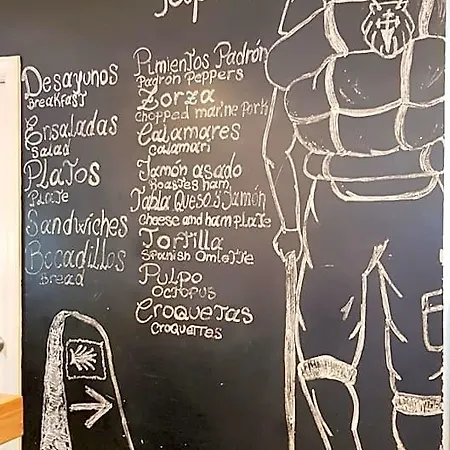 Desayunos
Breakfast
Ensaladas
Salad
Platos
Plate
Sandwiches
Bocadillos
Bread
Pimientos Padrón
Padron Peppers
Zorza
Chopped marine pork
Calamares
Calamari
Jamón asado
Roastes ham
Tabla Queso y Jamón
cheese and ham plate
Tortilla
Spanish Omlette
Pulpo
Octopus
Croquetas
Croquettes